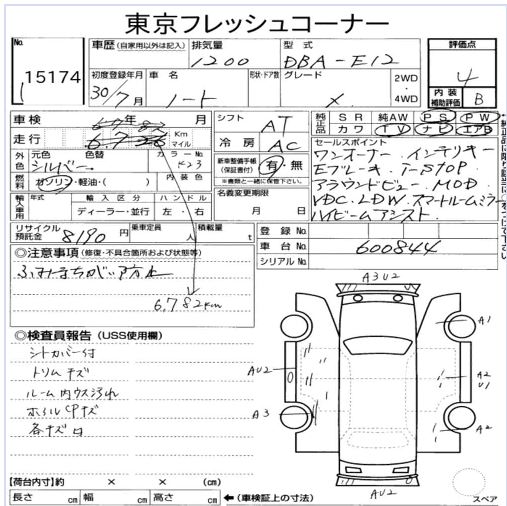 東京フレッシュコーナー
No. 15174
車歴 (自家用以外は記入) 排気量 1200 型式 DBA-E12 評価点 4
初度登録年月 30/7月 車名 ノート 形状・ドア数 グレード X 2WD・4WD 内装補助評価 B
車検 年 月 シフト AT 純正品 SR 純AW PS PW
走行 Km マイル 冷房 AC カワ TV ナビ エアB
外色 元色 シルバー 色替 カラーNo. K23 新車整備手帳(保証書付) 有・無 ※書類と一緒に保管下さい
セールスポイント
ワンオーナー. インテリキー
Eブレーキ. I-STOP
アラウンドビュー. MOD
VDC. LDW. スマートルームミラー
ハイビームアシスト.
燃料 ガソリン・軽油・( ) 内装色
名義変更期限 月 日
輸入車用 年式 輸入区分 ディーラー・並行 ハンドル 左・右
リサイクル預託金 8190円 乗車定員 人 積載量 t
登録 No.
車台 No. 600844
シリアル No.
◎注意事項 (修復・不具合箇所および状態等)
ふみまちがい防止
6,782km
◎検査員報告 (USS使用欄)
シートカバー付
トリムキズ
ルーム内ウス汚れ
ホイルCPキズ
各キズ凹
A3 U2
A1
AU2
A2
U1
A3
A2
AU2
スペア
【荷台内寸】約 × × (cm)
長さ cm 幅 cm 高さ cm ←(車検証上の寸法)